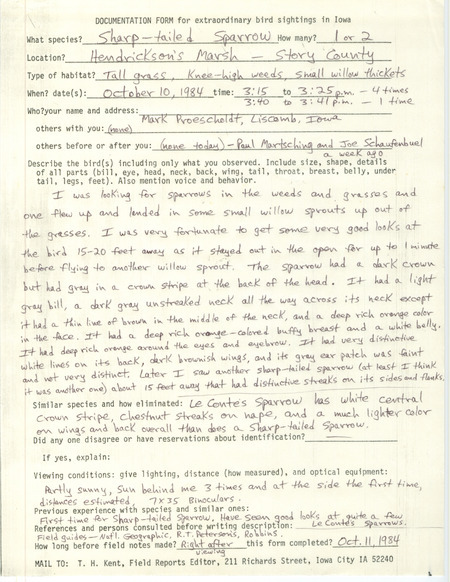 DOCUMENTATION FORM for extraordinary bird sightings in Iowa
What species? Sharp-tailed Sparrow How many? 1 or 2
Location? Hendrickson's Marsh - Story County
Type of habitat? Tall grass, Knee-high weeds, small willow thickets
When? date(s): October 10, 1984 time: 3:15 to 3:25 p.m. - 4 times
3:40 to 3:41 p.m. - 1 time
Who? your name and address: Mark Proescholdt, Liscomb, Iowa
others with you: (none)
others before or after you: (none today) - Paul Martsching and Joe Schaufenbuel
a week ago
Describe the bird(s) including only what you observed. Include size, shape, details
of all parts (bill, eye, head, neck, back, wing, tail, throat, breast, belly, under
tail, legs, feet). Also mention voice and behavior.
I was looking for sparrows in the weeds and grasses and
one flew up and landed in some small willow sprouts up out of
the grasses. I was very fortunate to get some very good looks at
the bird 15-20 feet away as it stayed out in the open for up to 1 minute
before flying to another willow sprout. The sparrow had a dark crown
but had gray in a crown stripe at the back of the head. It had a light
gray bill, a dark gray unstreaked neck all the way across its neck except
it had a thin line of brown in the middle of the neck, and a deep rich orange color
in the face. It had a deep rich orange-colored buffy breast and a white belly.
It had deep rich orange around the eyes and eyebrow. It had very distinctive
white lines on its back, dark brownish wings, and its gray ear patch was faint
and not very distinct. Later I saw another sharp-tailed sparrow (at least I think
it was another one) about 15 feet away that had distinctive streaks on its sides and flanks.
Similar species and how eliminated: Le Conte's Sparrow has white central
crown stripe, chestnut streaks on nape, and a much lighter color
on wings and back overall than does a Sharp-tailed Sparrow.
Did any one disagree or have reservations about identification?
If yes, explain:
Viewing conditions: give lighting, distance (how measured), and optical equipment:
Partly sunny, Sun behind me 3 times and at the side the first time,
distances estimated, 7x35 Binoculars.
Previous experience with species and similar ones:
First time for Sharp-tailed Sparrow, Have seen good looks at quite a few
Le Conte's Sparrows.
References and persons consulted before writing description:
Field guides - Natl. Geographic, R.T. Peterson's, Robbins.
How long before field notes made? Right after viewing this form completed? Oct. 11, 1984
MAIL TO: T. H. Kent, Field Reports Editor, 211 Richards Street, Iowa City IA 52240